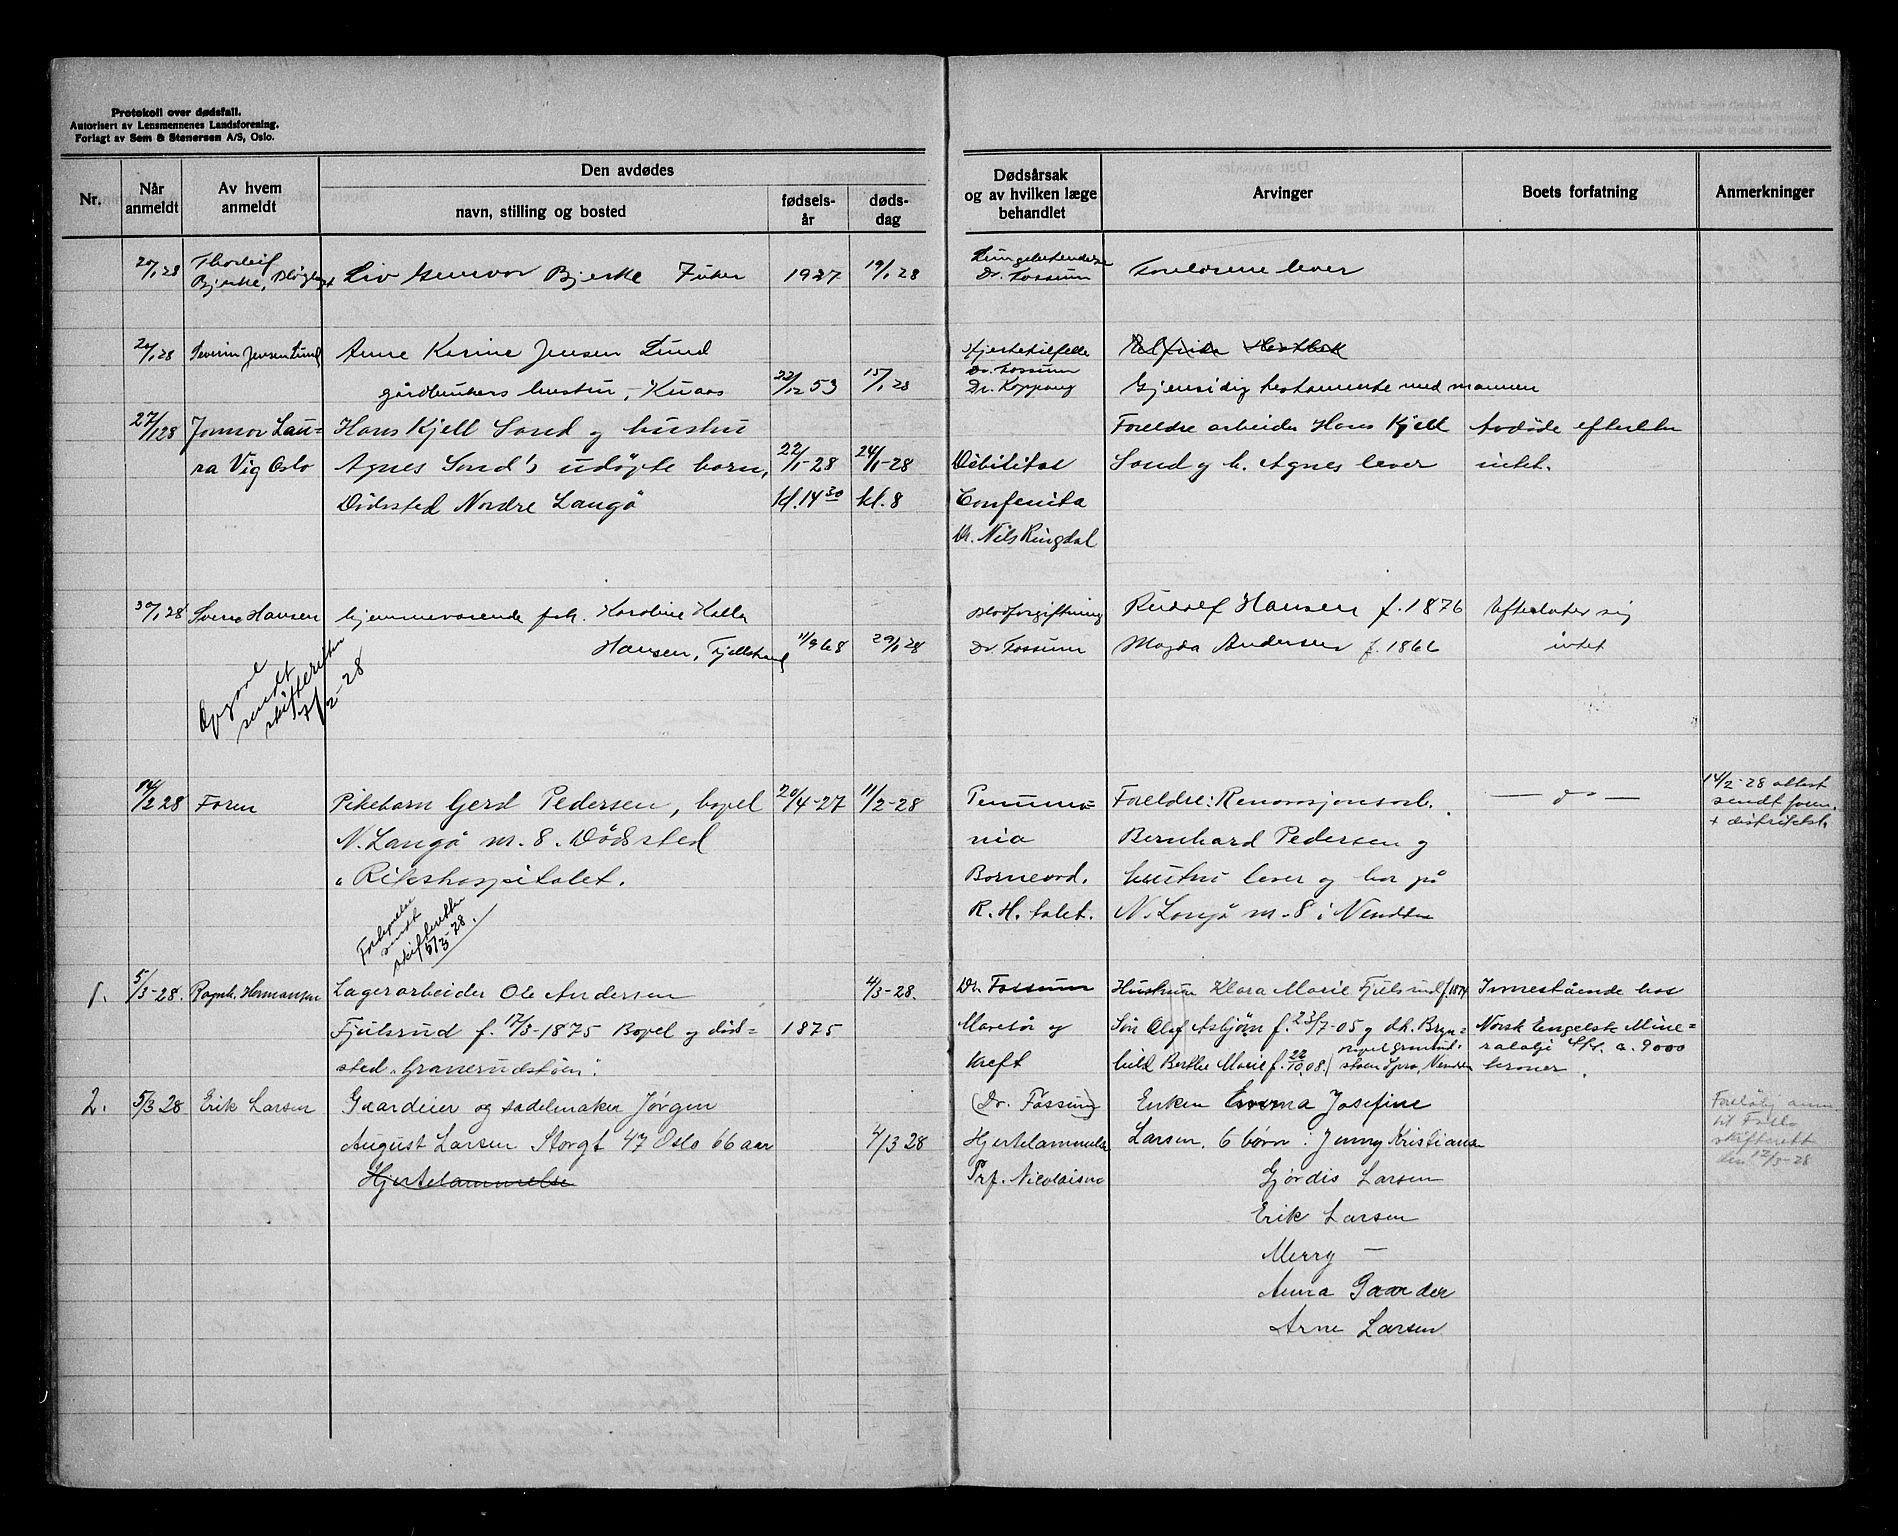 Protokoll over dødsfall.
Autorisert av Lensmennenes Landsforening.
Forlagt av Sem & Stenersen A/S, Oslo.
Nr.
Når anmeldt
Av hvem anmeldt
Den avdødes
navn, stilling og bosted
fødsels-år
døds-dag
Dødsårsak og av hvilken læge behandlet
Arvinger
Boets forfatning
Anmerkninger
20/1 28 Thorleif
Bjerke, Liv Gunvor Bjerke 1927 19/1 28
Dr. Fossum Foreldrene lever
Severin Jensen Lund Anne Karine Jensen Lund
gårdbrukers hustru, 22/12 53 15/1 28
Hjertetilfelle
Dr. Fossum
Dr. Koppang Gjensidig testamente med mannen
27/1 28 Jonnov Lau-
ra Vig Oslo
Hans Kjell Sand og hustru
Agnes Sand's udøpte barn,
Dødssted Nordre Langö
22/1-28
kl. 14 30
24/1-28
kl. 8
Debilitas
Confenita
Dr. Nils Ringdal
Foreldre arbeider Hans Kjell
Sand og h. Agnes lever
Avdøde efterlater
intet.
30/1 28 Hansen hjemmeværende Karoline
Hansen, Fjellstrand 11/9 68 29/1 28
Blodforgiftning
Dr. Fossum
Rudolf Hansen f. 1876
Magda Andersen f. 1866
Efterlater sig
intet
Opgave
sendt
skifteretten
7/2-28
14/2 28 Foren Pikebarn Gerd Pedersen, bopel
N. Langö m. 8. Dödssted
" Rikshospitalet.
20/4-27 11/2-28
nia
R. H. talet.
Foreldre: Renovasjonsarb.
Bernhard Pedersen og
hustru lever og bor på
N. Langö m-8 i
— do —
14/2-28 attest
sendt foren.
+ distriktsl.
sendt
skifteretten
5/3-28.
1. 5/3-28. Ragnh. Hermansen
Lagerarbeider Ole Andersen
Fjulsrud f. 17/3-1875 Bopel og död-
sted "Granerudstöen".
1875
4/3-28.
Dr. Fossum
og
kreft
Hustrue Klara Marie Fjulsrud f. 1874
Sön Olaf Asbjörn f. 23/7-05 og dt. Bryn-
hild Berthe Marie f. 22/10.08.
Innestående hos
Norsk Engelsk Mine-
ralolje A/S. a. 9000
kroner.
2. 5/3 28 Erik Larsen
Gaardeier og sadelmaker Jörgen
August Larsen Storgt 47 Oslo 66 aar
Hjertelammelse
4/3 28
(Dr. Fossum)
Hjertelammelse
Prf. Nicolaisen
Enken Emma Josefine
Larsen. 6 börn: Jenny Kristiansen
Gjördis Larsen
Erik Larsen
Merry —
Anna Gaarder
Arne Larsen
til
skifterett
den 12/3-28